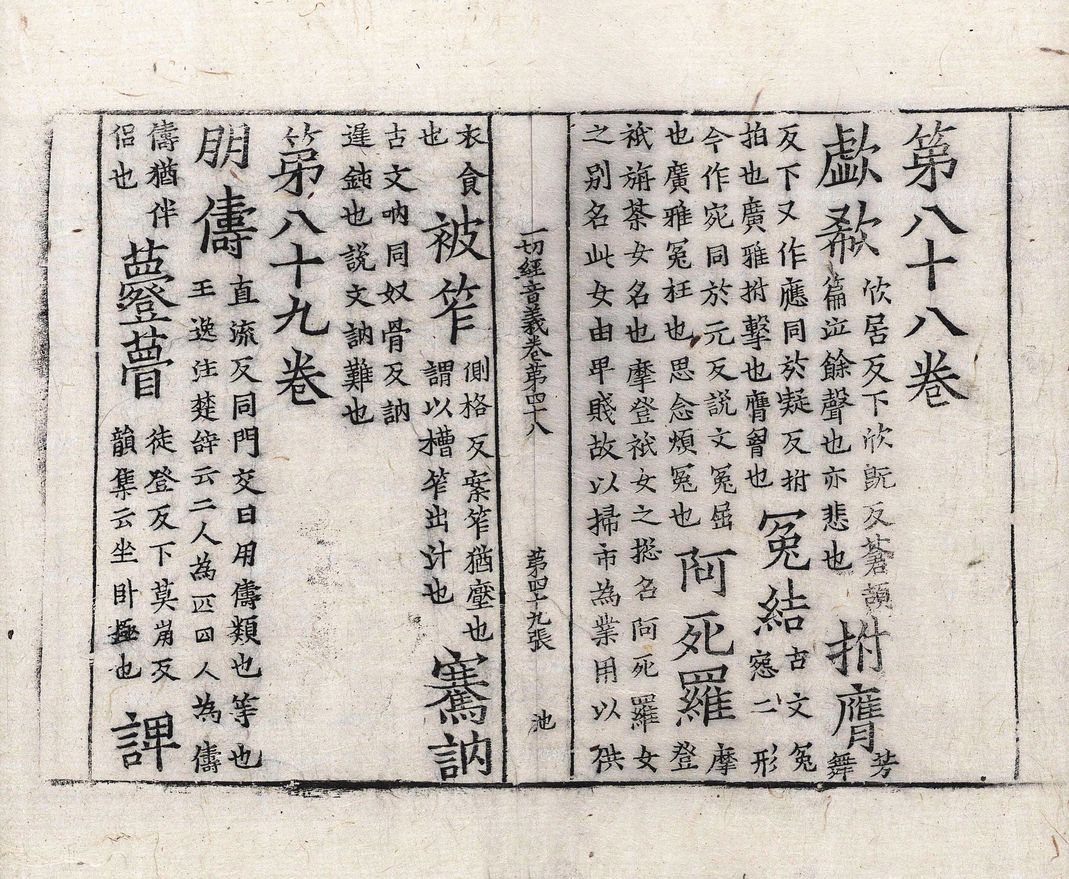 第八十八卷
歔欷
欣居反下欣旣反蒼頡
篇泣餘聲也亦悲也
拊膺
芳
舞
反下又作應同於疑反拊
拍也廣雅拊擊也膺匈也
冤結
古文冤
惌二形
今作宛同於元反說文冤屈
也廣雅冤枉也思念煩冤也
阿死羅
摩
登
祇旃荼女名也摩登祇女之揔名阿死羅女
之別名此女由卑賤故以掃市為業用以供
一切經音義卷第四十八 第四十九張 池
衣食
也
被笮
側格反案笮猶壓也
謂以槽笮出汁也
騫訥
古文吶同奴骨反訥
遲鈍也說文訥難也
第八十九卷
朋儔
直流反同門交日用儔類也等也
王逸注楚辭云二人為匹四人為儔
儔猶伴
侶也
瞢
徒登反下莫崩反
韻集云坐臥極也
諀